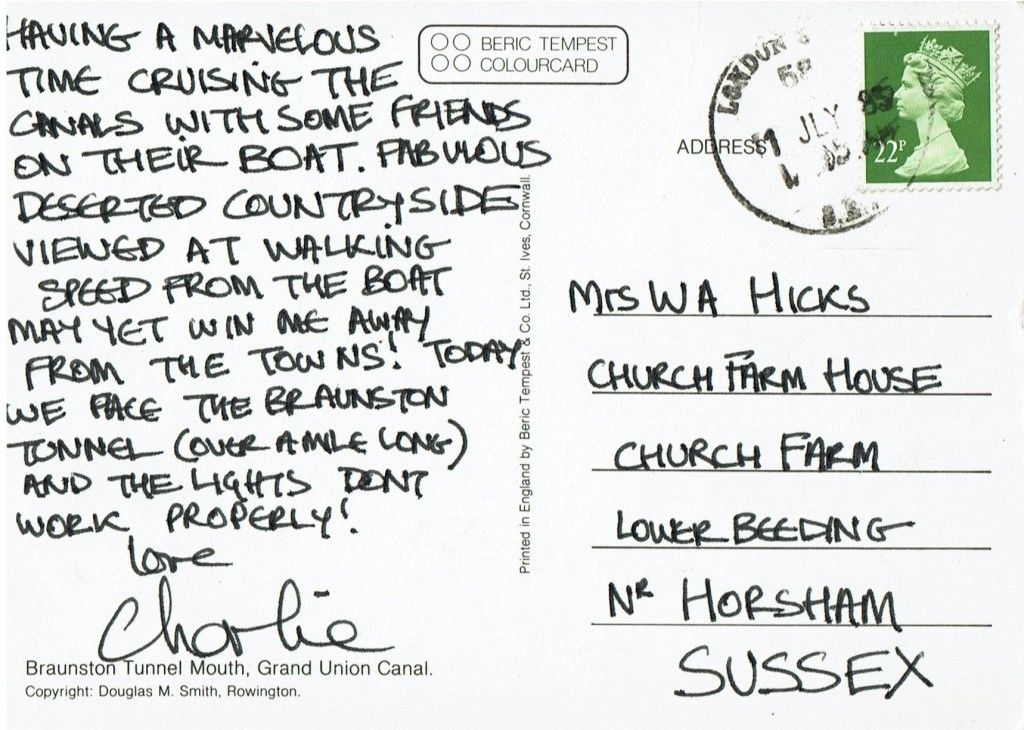 HAVING A MARVELOUS
TIME CRUISING THE
CANALS WITH SOME FRIENDS
ON THEIR BOAT. FABULOUS
DESERTED COUNTRYSIDE
VIEWED AT WALKING
SPEED FROM THE BOAT
MAY YET WIN ME AWAY
FROM THE TOWNS! TODAY
WE FACE THE BRAUNSTON
TUNNEL (OVER A MILE LONG)
AND THE LIGHTS DONT
WORK PROPERLY!
love
Charlie
Braunston Tunnel Mouth, Grand Union Canal.
Copyright: Douglas M. Smith, Rowington.
BERIC TEMPEST
COLOURCARD
Printed in England by Beric Tempest & Co. Ltd., St. Ives, Cornwall.
LONDON
JLY 85
22P
ADDRESS
Mrs WA HICKS
CHURCH FARM HOUSE
CHURCH FARM
LOWER BEEDING
NR HORSHAM
SUSSEX